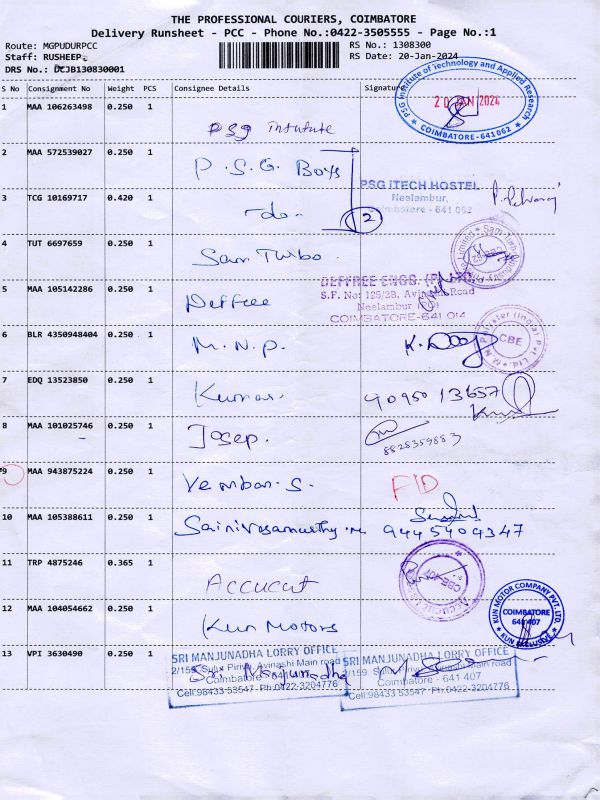 THE PROFESSIONAL COURIERS, COIMBATORE
Delivery Runsheet - PCC - Phone No.:0422-3505555 - Page No.:1
Route: MGPUDURPCC
Staff: RUSHEEP.
DRS No.: DCJB130830001
RS No.: 1308300
RS Date: 20-Jan-2024
S No Consignment No Weight PCS Consignee Details Signature
PSG Institute of Technology and Applied Research
20 JAN 2024
COIMBATORE-641 062
1 MAA 106263498 0.250 1
psg Intutute
2 MAA 572539027 0.250 1 P.S.G. Boys
PSG ITECH HOSTEL
Neelambur,
Coimbatore - 641 062
3 TCG 10169717 0.420 1 -do- 2
4 TUT 6697659 0.250 1 Sam Turbo
5 MAA 105142286 0.250 1 Deffree
DEFFREE ENGG. (P) LTD
S.F. No: 125/2B, Avinashi Road
Neelambur (PO)
COIMBATORE-641 014
6 BLR 4350948404 0.250 1 M.N.P. K.
M.N. Polyster (India) Pvt Ltd.
CBE
7 EDQ 13523850 0.250 1 Kumar. 90950 13657
8 MAA 101025746 0.250 1 Josep.
8828359883
9 MAA 943875224 0.250 1 Vemban.S. FID
10 MAA 105388611 0.250 1 Sainivasamurthy.m 9445404347
11 TRP 4875246 0.365 1 Accucut
CBE-407
12 MAA 104054662 0.250 1 Kun Motors
KUN MOTOR COMPANY PVT. LTD.
COIMBATORE
641 407
KUN EXCLUSIVE
13 VPI 3630490 0.250 1 Sri Manjunadha
SRI MANJUNADHA LORRY OFFICE
2/159, Sulur Pirivu, Avinashi Main road
Coimbatore - 641 407
Cell:98433 53547 Ph:0422-3204776
SRI MANJUNADHA LORRY OFFICE
2/159, Sulur Pirivu, Avinashi Main road
Coimbatore - 641 407
Cell:98433 53547 Ph:0422-3204776